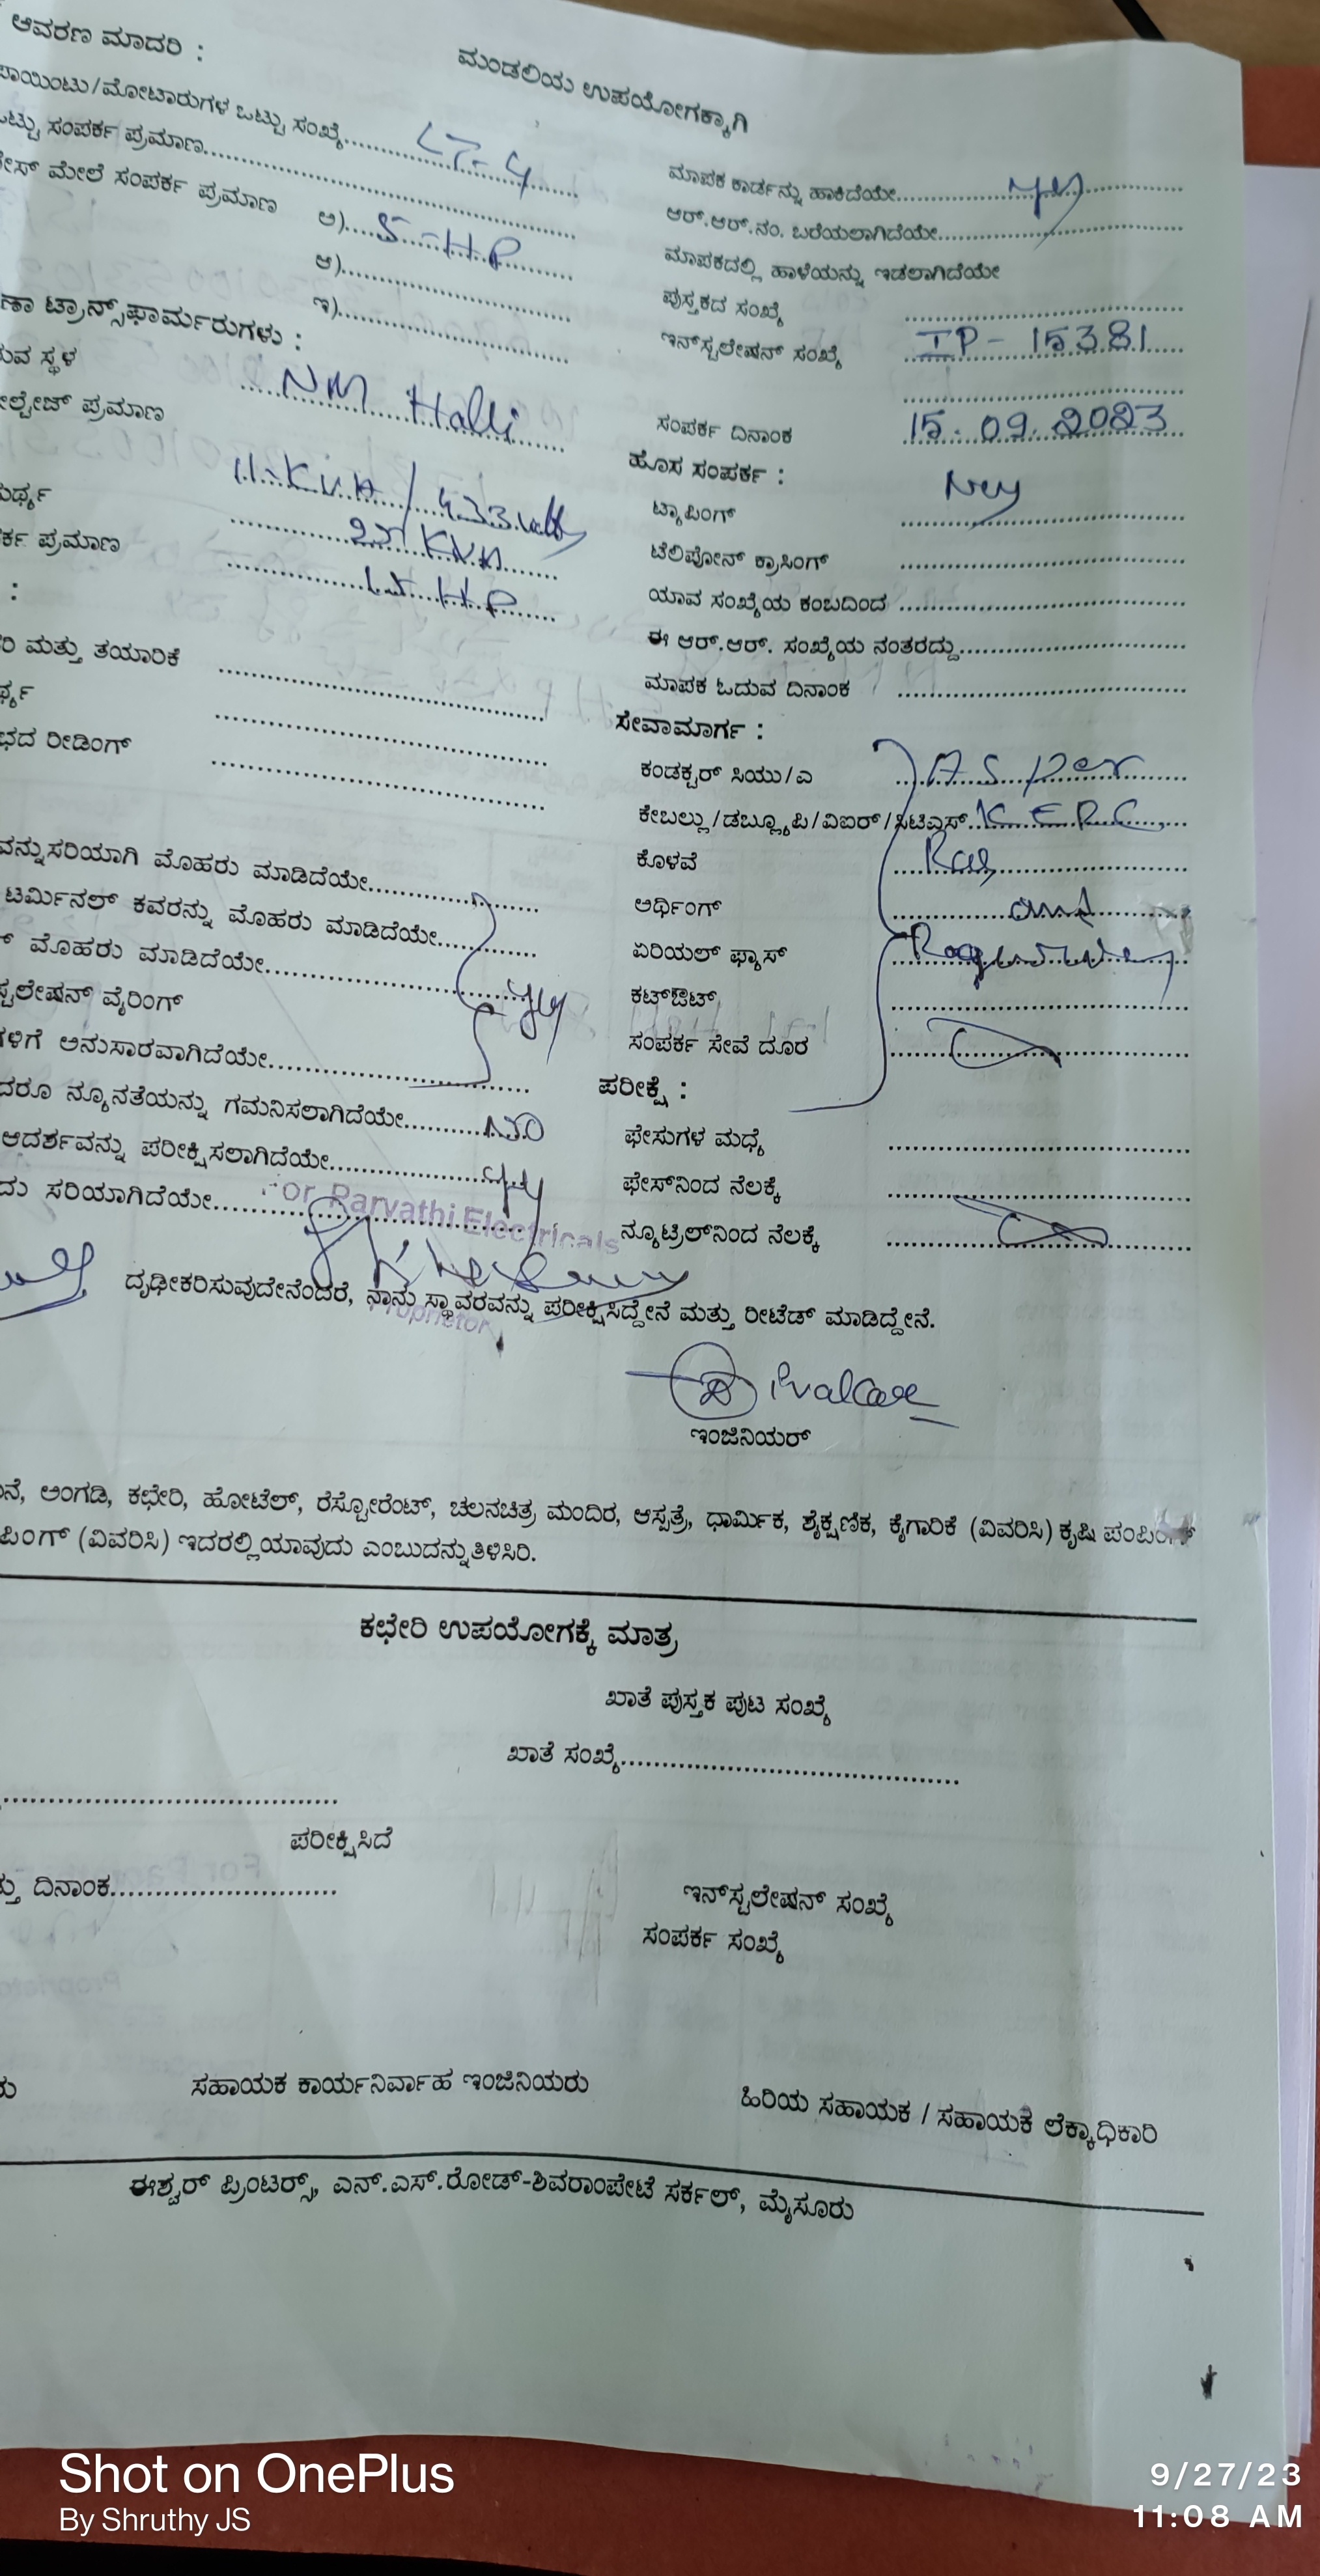 ಆವರಣ ಮಾದರಿ :
ಮಂಡಲಿಯ ಉಪಯೋಗಕ್ಕಾಗಿ
ಪಾಯಿಂಟು/ಮೋಟಾರುಗಳ ಒಟ್ಟು ಸಂಖ್ಯೆ.......... LT-4
ಒಟ್ಟು ಸಂಪರ್ಕ ಪ್ರಮಾಣ..........
ಮೇಲೆ ಸಂಪರ್ಕ ಪ್ರಮಾಣ ಅ).... 5-HP
ಆ)..........
ಇ)..........
ಟ್ರಾನ್ಸ್‌ಫಾರ್ಮರುಗಳು :
ಸ್ಥಳ NM Halli
ಪ್ರಮಾಣ 11-KVA / 433
25 KVA
ಪ್ರಮಾಣ HP
:
ಮತ್ತು ತಯಾರಿಕೆ ..........
ರೀಡಿಂಗ್ ..........
ಮೊಹರು ಮಾಡಿದೆಯೇ..........
ಟರ್ಮಿನಲ್ ಕವರನ್ನು ಮೊಹರು ಮಾಡಿದೆಯೇ..........
ಮೊಹರು ಮಾಡಿದೆಯೇ.......... yes
ವೈರಿಂಗ್
ಅನುಸಾರವಾಗಿದೆಯೇ..........
ನ್ಯೂನತೆಯನ್ನು ಗಮನಿಸಲಾಗಿದೆಯೇ.......... NO
ಆದರ್ಶವನ್ನು ಪರೀಕ್ಷಿಸಲಾಗಿದೆಯೇ.......... yes
ಸರಿಯಾಗಿದೆಯೇ..........
ಮಾಪಕ ಕಾರ್ಡನ್ನು ಹಾಕಿದೆಯೇ.......... yes
ಆರ್.ಆರ್.ನಂ. ಬರೆಯಲಾಗಿದೆಯೇ..........
ಮಾಪಕದಲ್ಲಿ ಹಾಳೆಯನ್ನು ಇಡಲಾಗಿದೆಯೇ
ಪುಸ್ತಕದ ಸಂಖ್ಯೆ ..........
ಇನ್‌ಸ್ಟಲೇಷನ್ ಸಂಖ್ಯೆ IP-15381
ಸಂಪರ್ಕ ದಿನಾಂಕ 15.09.2023
ಹೊಸ ಸಂಪರ್ಕ :
ಟ್ಯಾಪಿಂಗ್ ..........
ಟೆಲಿಪೋನ್ ಕ್ರಾಸಿಂಗ್ ..........
ಯಾವ ಸಂಖ್ಯೆಯ ಕಂಬದಿಂದ ..........
ಈ ಆರ್.ಆರ್. ಸಂಖ್ಯೆಯ ನಂತರದ್ದು..........
ಮಾಪಕ ಓದುವ ದಿನಾಂಕ ..........
ಸೇವಾಮಾರ್ಗ :
ಕಂಡಕ್ಟರ್ ಸಿಯು/ಎ As per
ಕೇಬಲ್ಲು/ಡಬ್ಲ್ಯೂಪಿ/ವಿಐರ್/ಸಿಟಿಎಸ್. KERC
ಕೊಳವೆ
ಅರ್ಥಿಂಗ್ and
ಏರಿಯಲ್ ಫ್ಯೂಸ್
ಕಟ್‌ಔಟ್ ..........
ಸಂಪರ್ಕ ಸೇವೆ ದೂರ ..........
ಪರೀಕ್ಷೆ :
ಫೇಸುಗಳ ಮಧ್ಯೆ ..........
ಫೇಸ್‌ನಿಂದ ನೆಲಕ್ಕೆ ..........
ನ್ಯೂಟ್ರಿಲ್‌ನಿಂದ ನೆಲಕ್ಕೆ ..........
For Parvathi Electricals
Proprietor
ದೃಢೀಕರಿಸುವುದೇನೆಂದರೆ, ನಾನು ಸ್ಥಾವರವನ್ನು ಪರೀಕ್ಷಿಸಿದ್ದೇನೆ ಮತ್ತು ರೀಟೆಡ್ ಮಾಡಿದ್ದೇನೆ.
ಇಂಜಿನಿಯರ್
ಅಂಗಡಿ, ಕಛೇರಿ, ಹೋಟೆಲ್, ರೆಸ್ಟೋರೆಂಟ್, ಚಲನಚಿತ್ರ ಮಂದಿರ, ಆಸ್ಪತ್ರೆ, ಧಾರ್ಮಿಕ, ಶೈಕ್ಷಣಿಕ, ಕೈಗಾರಿಕೆ (ವಿವರಿಸಿ) ಕೃಷಿ ಪಂಪಿಂಗ್
(ವಿವರಿಸಿ) ಇದರಲ್ಲಿ ಯಾವುದು ಎಂಬುದನ್ನು ತಿಳಿಸಿರಿ.
ಕಛೇರಿ ಉಪಯೋಗಕ್ಕೆ ಮಾತ್ರ
ಖಾತೆ ಪುಸ್ತಕ ಪುಟ ಸಂಖ್ಯೆ
ಖಾತೆ ಸಂಖ್ಯೆ..........
ಪರೀಕ್ಷಿಸಿದೆ
ದಿನಾಂಕ..........
ಇನ್‌ಸ್ಟಲೇಷನ್ ಸಂಖ್ಯೆ
ಸಂಪರ್ಕ ಸಂಖ್ಯೆ
ಸಹಾಯಕ ಕಾರ್ಯನಿರ್ವಾಹ ಇಂಜಿನಿಯರು
ಹಿರಿಯ ಸಹಾಯಕ / ಸಹಾಯಕ ಲೆಕ್ಕಾಧಿಕಾರಿ
ಈಶ್ವರ್ ಪ್ರಿಂಟರ್ಸ್, ಎನ್.ಎಸ್.ರೋಡ್-ಶಿವರಾಂಪೇಟೆ ಸರ್ಕಲ್, ಮೈಸೂರು
Shot on OnePlus
By Shruthy JS
9/27/23
11:08 AM